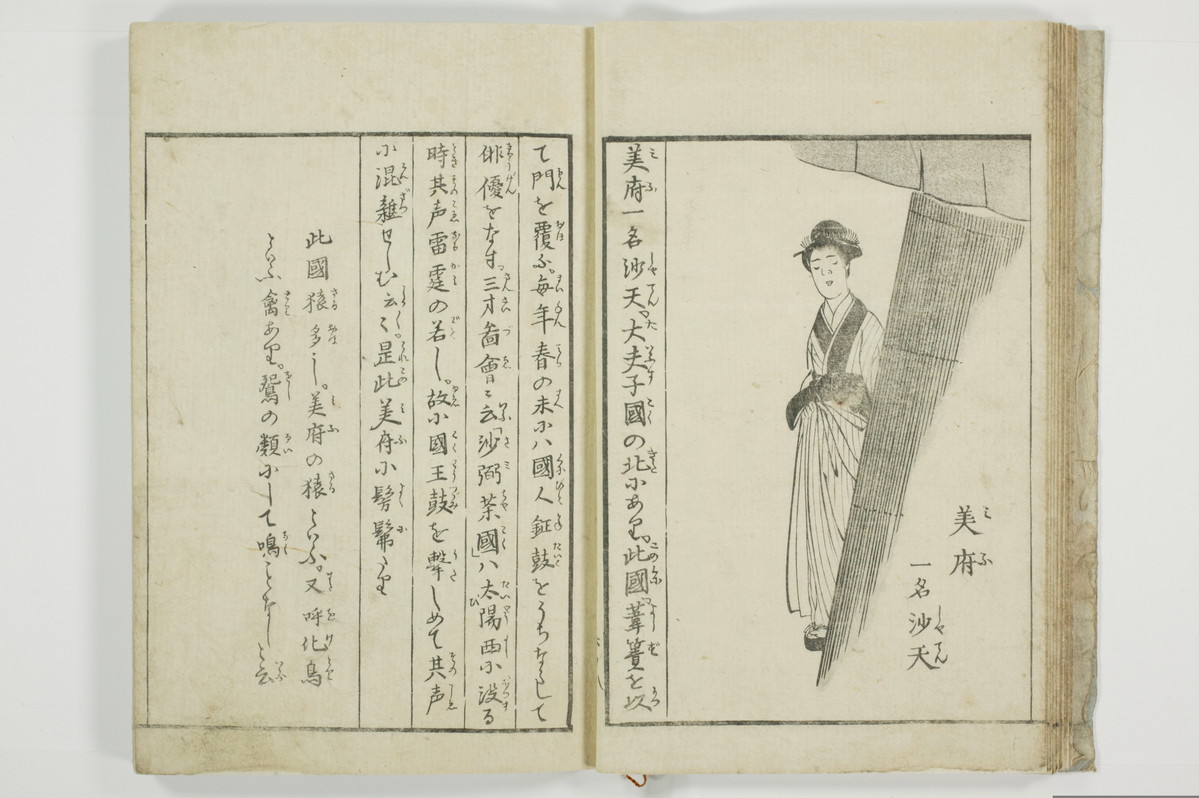 美府
一名沙天
美府一名沙天。大夫子國の北にあり。此國葦簀を以
て門を覆ふ。毎年春の末にハ國人鉦鼓をうちならして
俳優をなす。三才圖會ニ云「沙弼茶國」ハ太陽西に没る
時其声雷霆の若し。故に國王鼓を撃しめて其声
に混雑せしむ云〻。是此美府に髣髴たり
此國猿多し。美府の猿といふ。又呼化鳥
といふ禽あり。鵞の類にして鳴ことなしと云